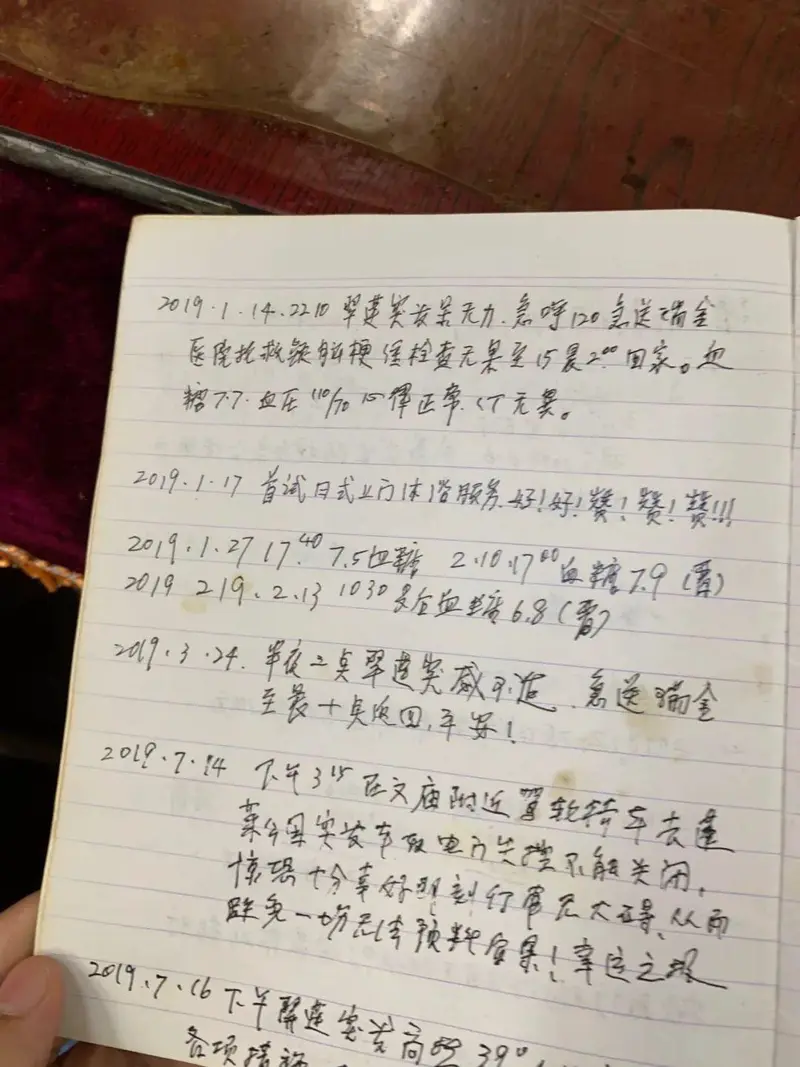 2019.1.14.2210 翠莲突发呆无力.急呼120急送瑞金
医院抢救疑脑梗经检查无果至15晨2⁰⁰回家。血
糖7.7.血压110/70心律正常.CT无异。
2019.1.17 首试日式上门体浴服务.好!好!赞!赞!赞!!!
2019.1.27 17.⁴⁰ 7.5血糖 2.10.17⁰⁰血糖7.9(晋)
2019 219.2.13 1030 餐后血糖6.8(晋)
2019.3.24.半夜二点翠莲突感不适.急送瑞金
至晨十点返回,平安!
2019.7.14 下午3¹⁵在文庙附近驾轮椅车去蓬
莱公园突发车速电门失控不能关闭,
惊恐十分幸好即刻行驾无大碍,从而
避免一场无法预料后果!幸运之极
2019.7.16下午翠莲突发高烧39°
各项指标